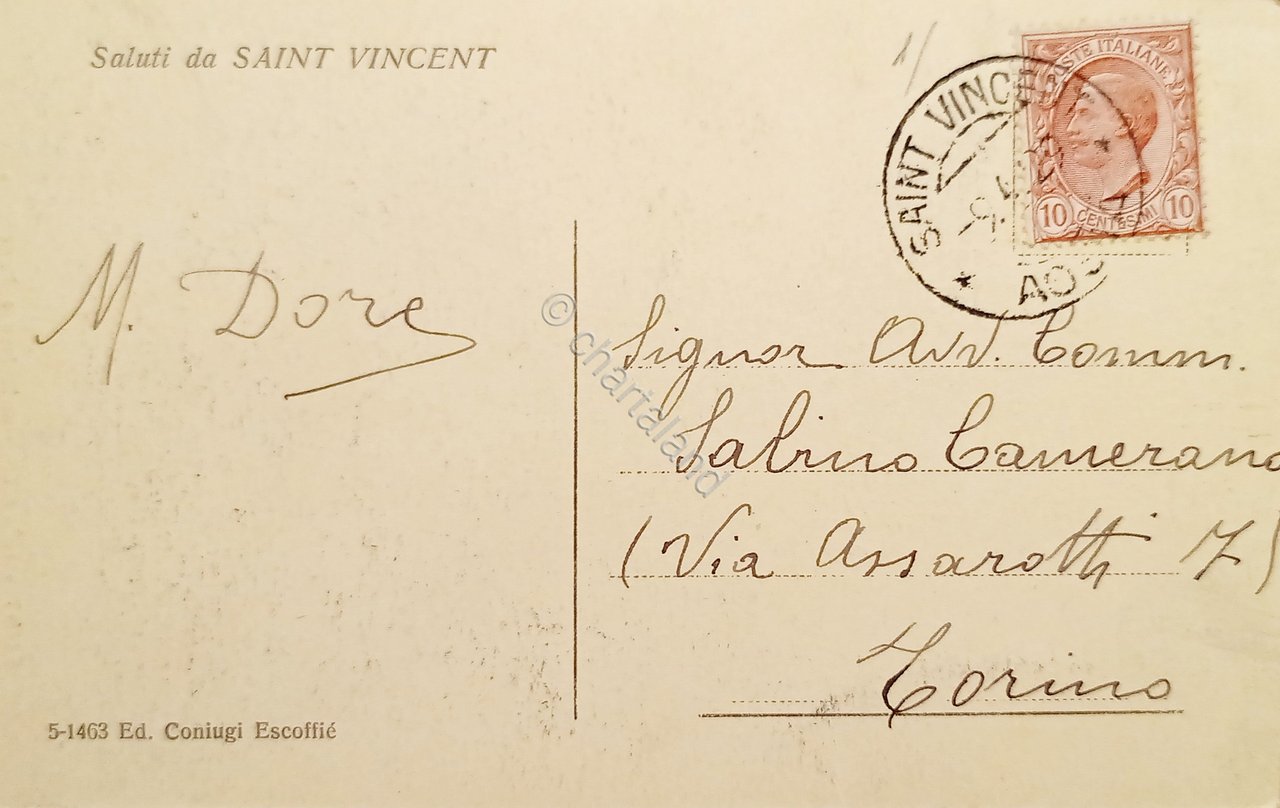 Saluti da SAINT VINCENT
1/
SAINT VINCE
AOS
POSTE ITALIANE
10 CENTESIMI 10
M. Dore
© chartaland
Signor Avv. Comm.
Sabino Camerano
(Via Assarotti 7)
Torino
5-1463 Ed. Coniugi Escoffié